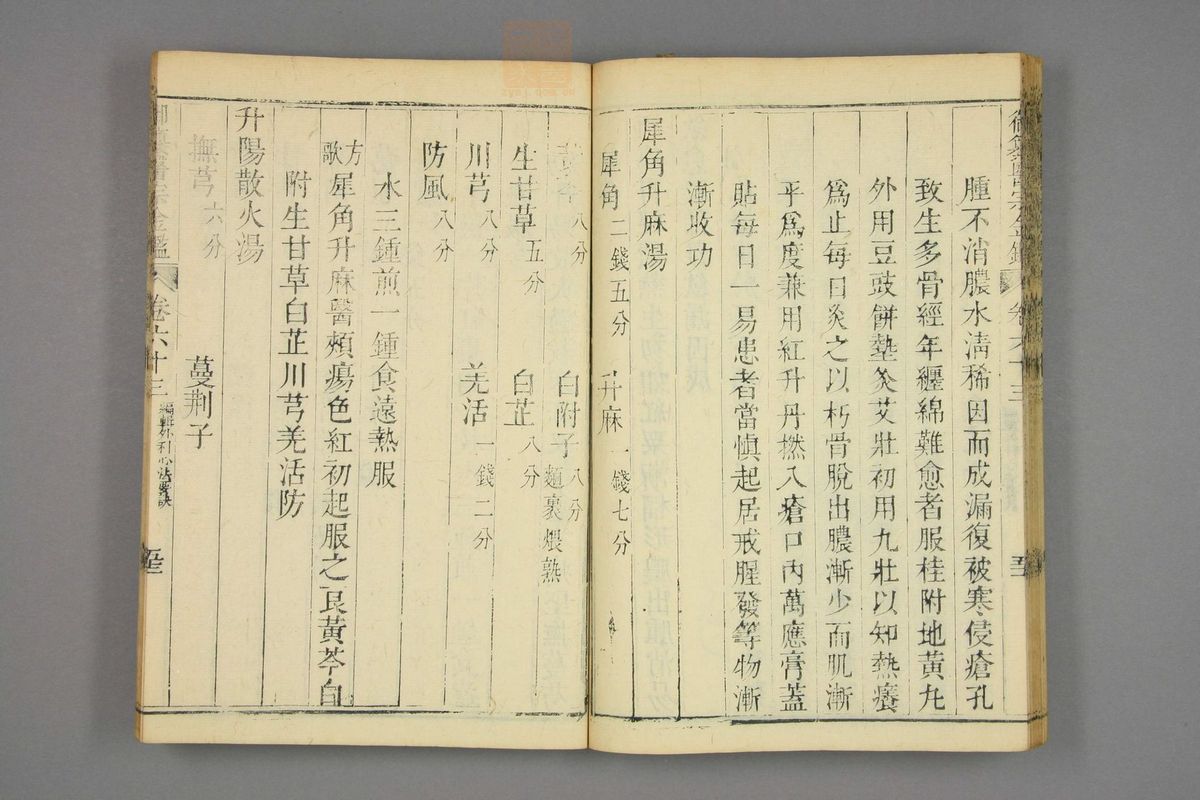 腫不消膿水清稀因而成漏復被寒侵瘡孔
致生多骨經年纒綿難愈者服桂附地黃丸
外用豆豉餅墊灸艾壯初用九壯以知熱癢
爲止每日灸之以朽骨脫出膿漸少而肌漸
平爲度兼用紅升丹撚入瘡口內萬應膏蓋
貼每日一易患者當慎起居戒腥發等物漸
漸收功
犀角升麻湯
犀角二錢五分 升麻一錢七分
八分 白附子八分麵裹煨熟
生甘草五分 白芷八分
川芎八分 羌活一錢二分
防風八分
水三鍾煎一鍾食遠熱服
方歌犀角升麻醫頰瘍色紅初起服之良黃芩白
附生甘草白芷川芎羌活防
升陽散火湯
撫芎六分 蔓荆子
金鑑 卷六十三 編輯外科心法要訣